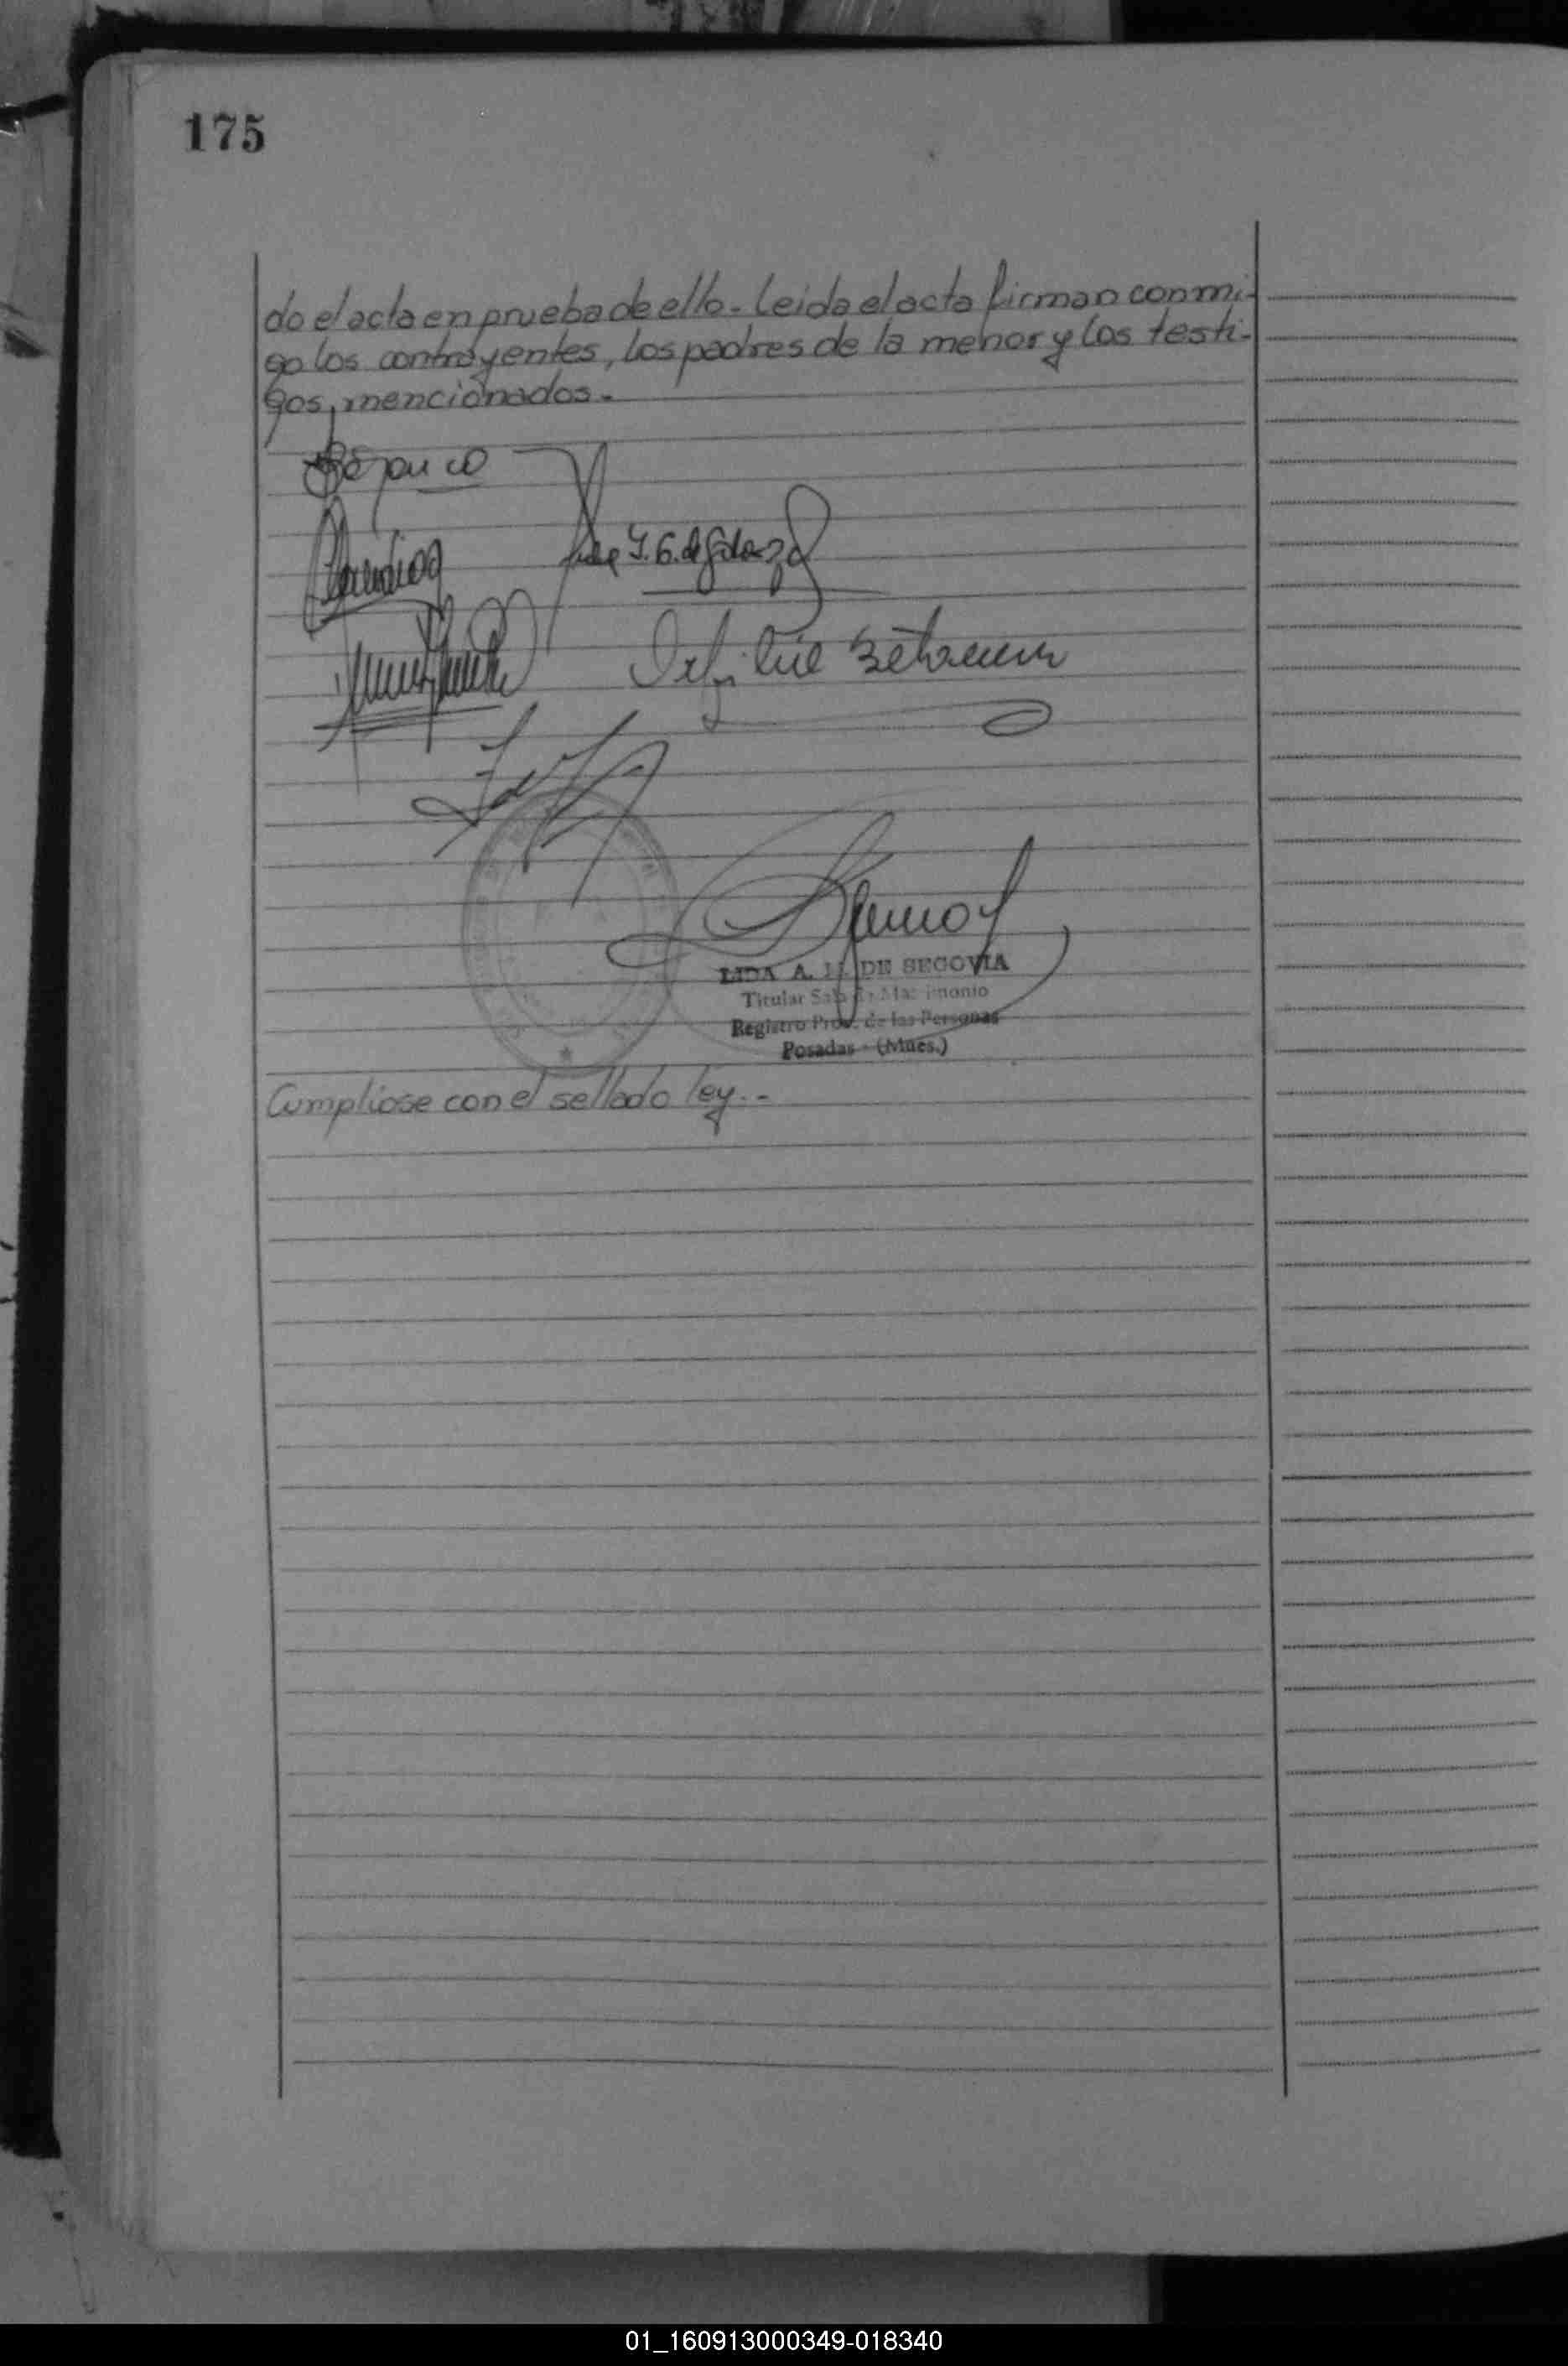 175
do el acta en prueba de ello - Leida el acta firman conmi-
go los contrayentes, los padres de la menor y los testi-
gos, mencionados.-
LIDA A. DE SEGOVIA
Titular Sala de Matrimonio
Registro Prov. de las Personas
Posadas - (Mnes.)
Cumpliose con el sellado ley.-
01_160913000349-018340